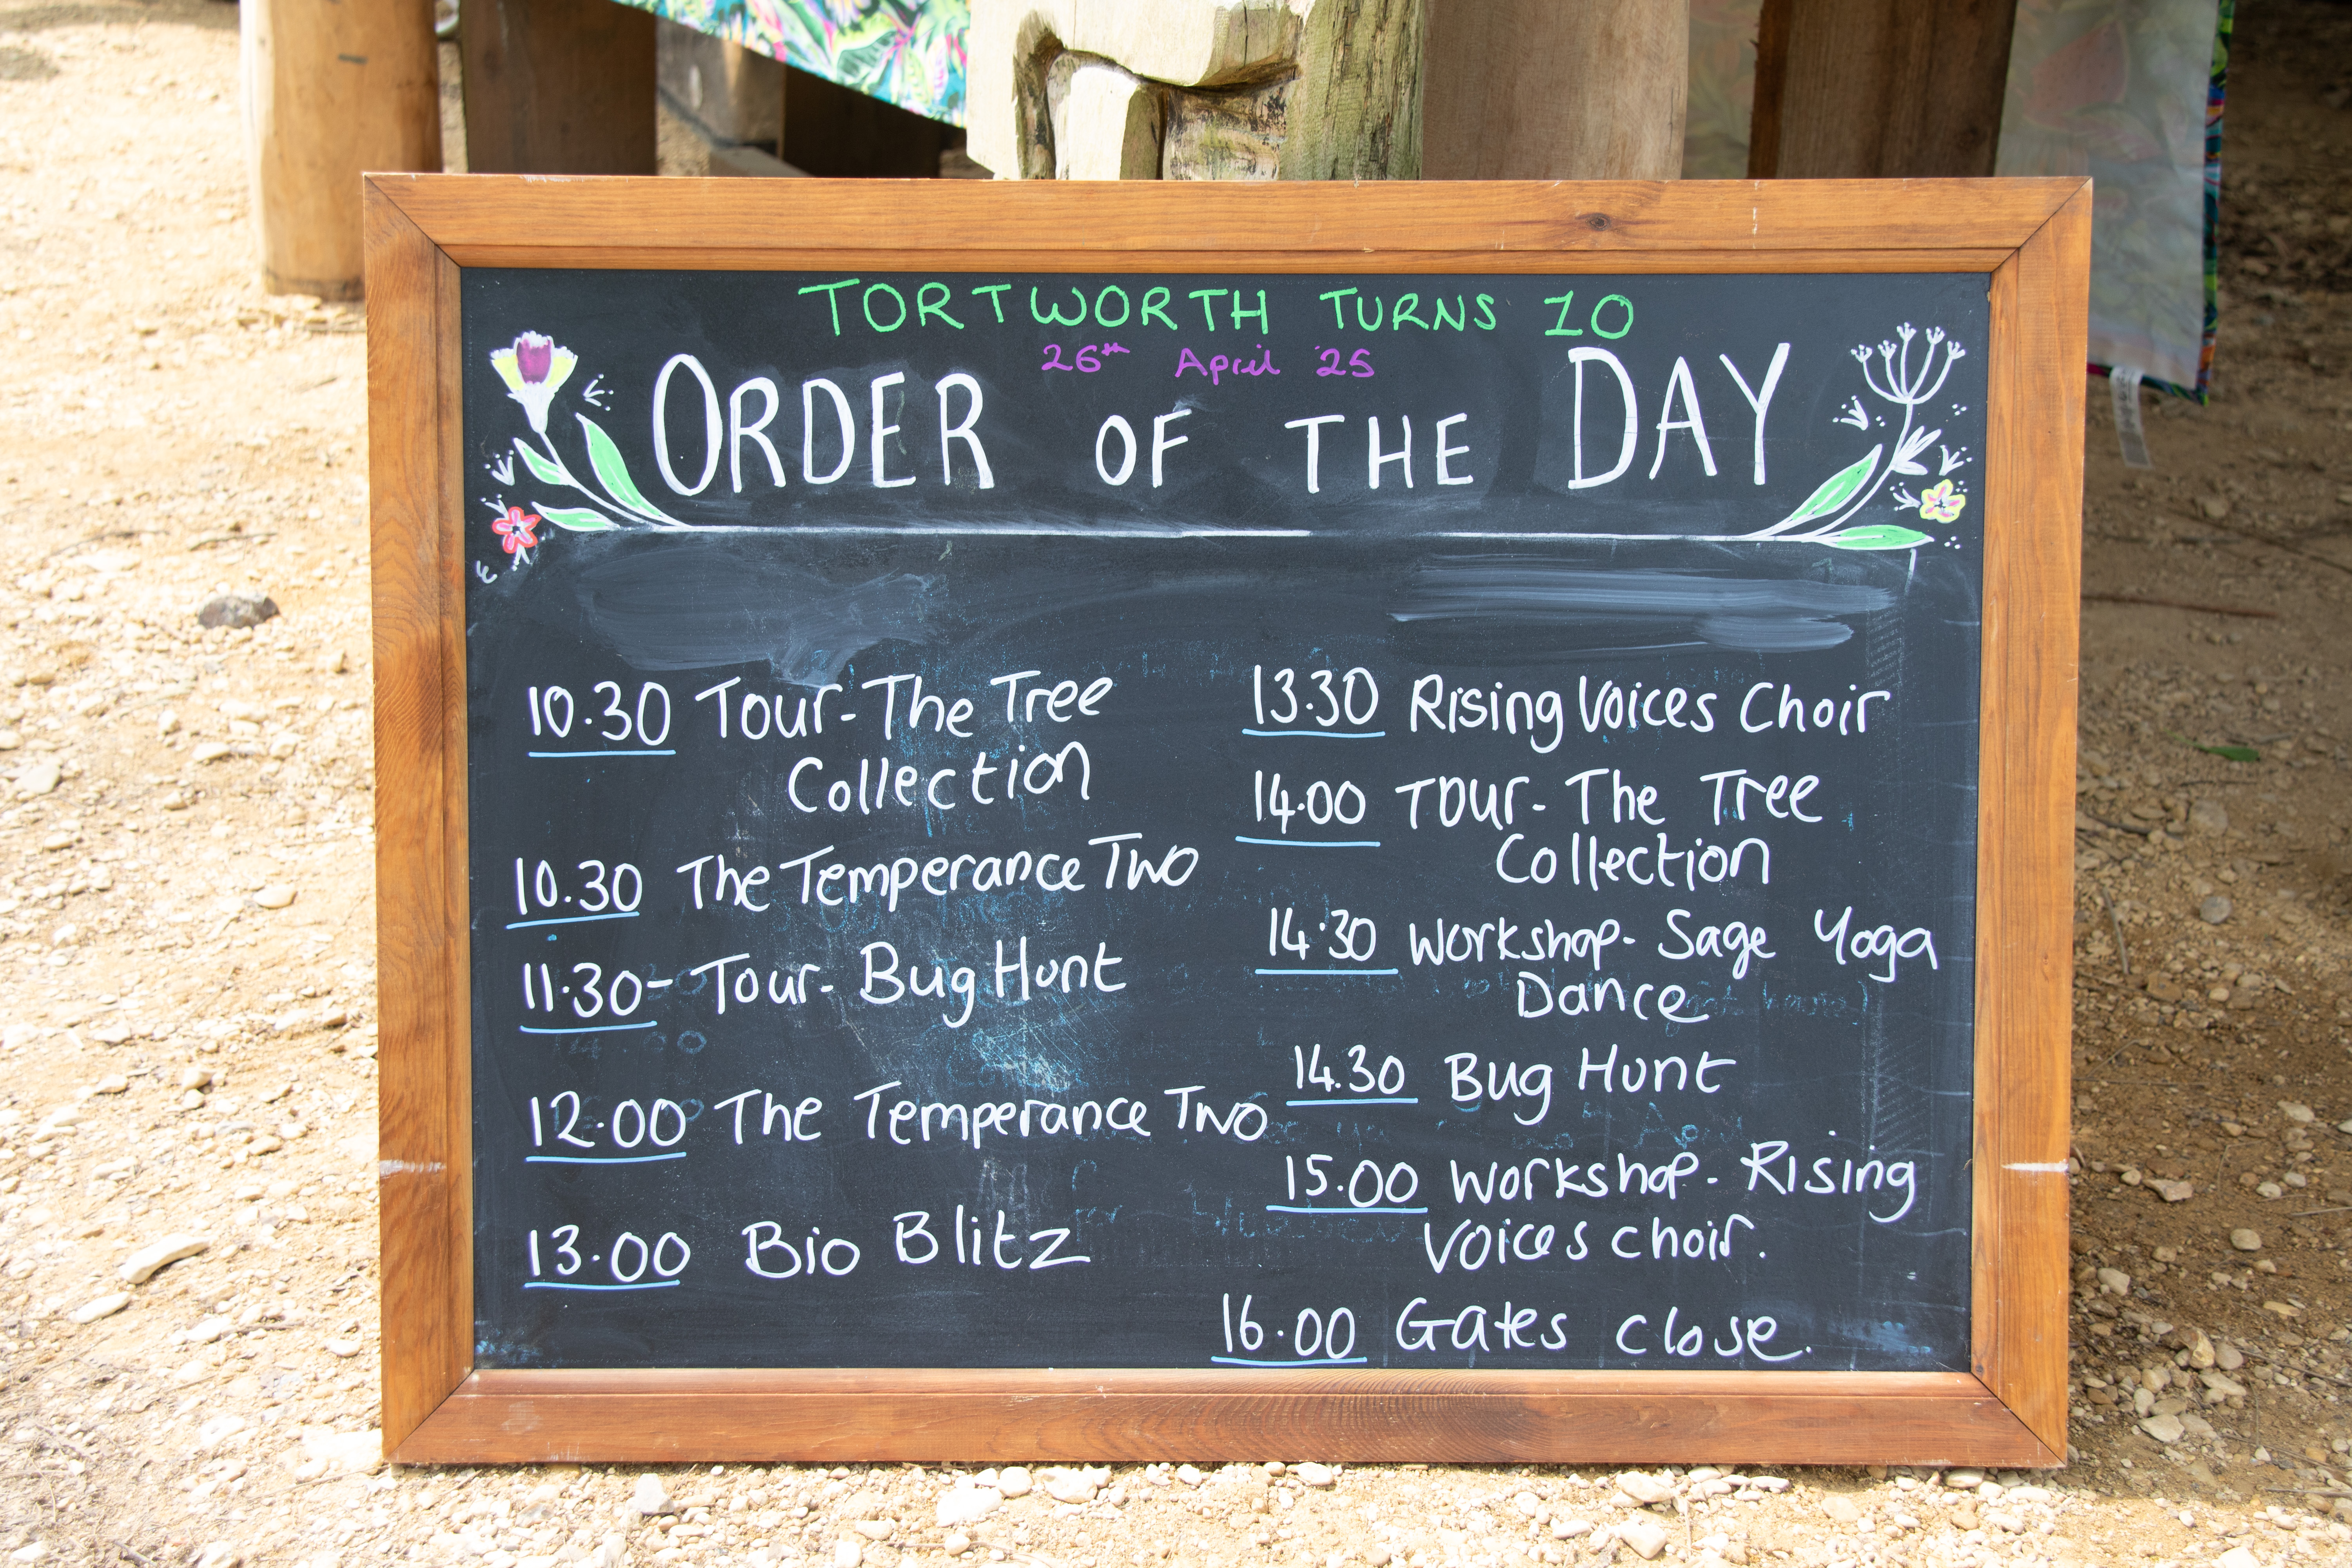 TORTWORTH TURNS 10
26th April '25
ORDER OF THE DAY
10.30 Tour - The Tree
Collection
10.30 The Temperance Two
11.30 - Tour - Bug Hunt
12.00 The Temperance Two
13.00 Bio Blitz
13.30 Rising Voices Choir
14.00 Tour - The Tree
Collection
14.30 Workshop - Sage Yoga
Dance
14.30 Bug Hunt
15.00 Workshop - Rising
Voices choir.
16.00 Gates close.